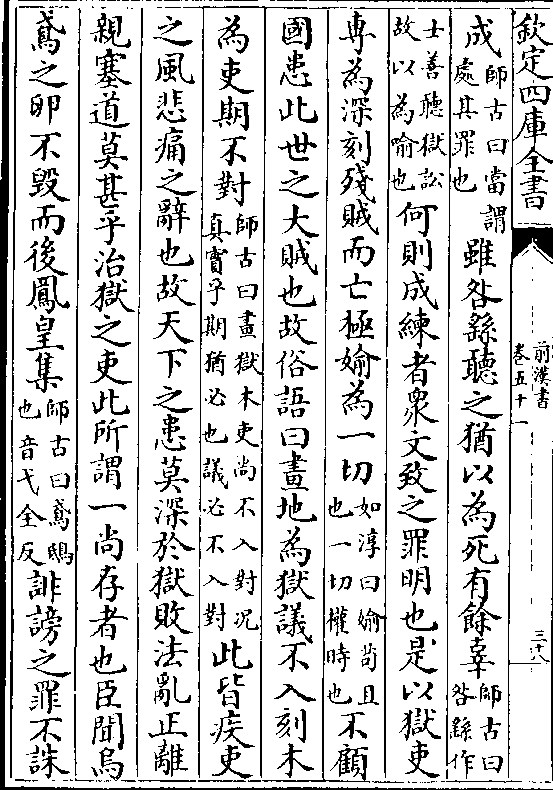 欽定四庫全書
前漢書
卷五十一
三十八
成師古曰當謂處其罪也雖咎繇聽之猶以為死有餘辜師古曰咎繇作
士善聽獄訟故以為喻也何則成練者衆文致之罪明也是以獄吏
專為深刻殘賊而亡極媮為一切如淳曰媮苟且也一切權時也不顧
國患此世之大賊也故俗語曰畫地為獄議不入刻木
為吏期不對師古曰畫獄木吏尚不入對况真實乎期猶必也議必不入對此皆疾吏
之風悲痛之辭也故天下之患莫深於獄敗法亂正離
親塞道莫甚乎治獄之吏此所謂一尚存者也臣聞烏
鳶之卵不毀而後鳳皇集師古曰鳶鴟也音弋全反誹謗之罪不誅